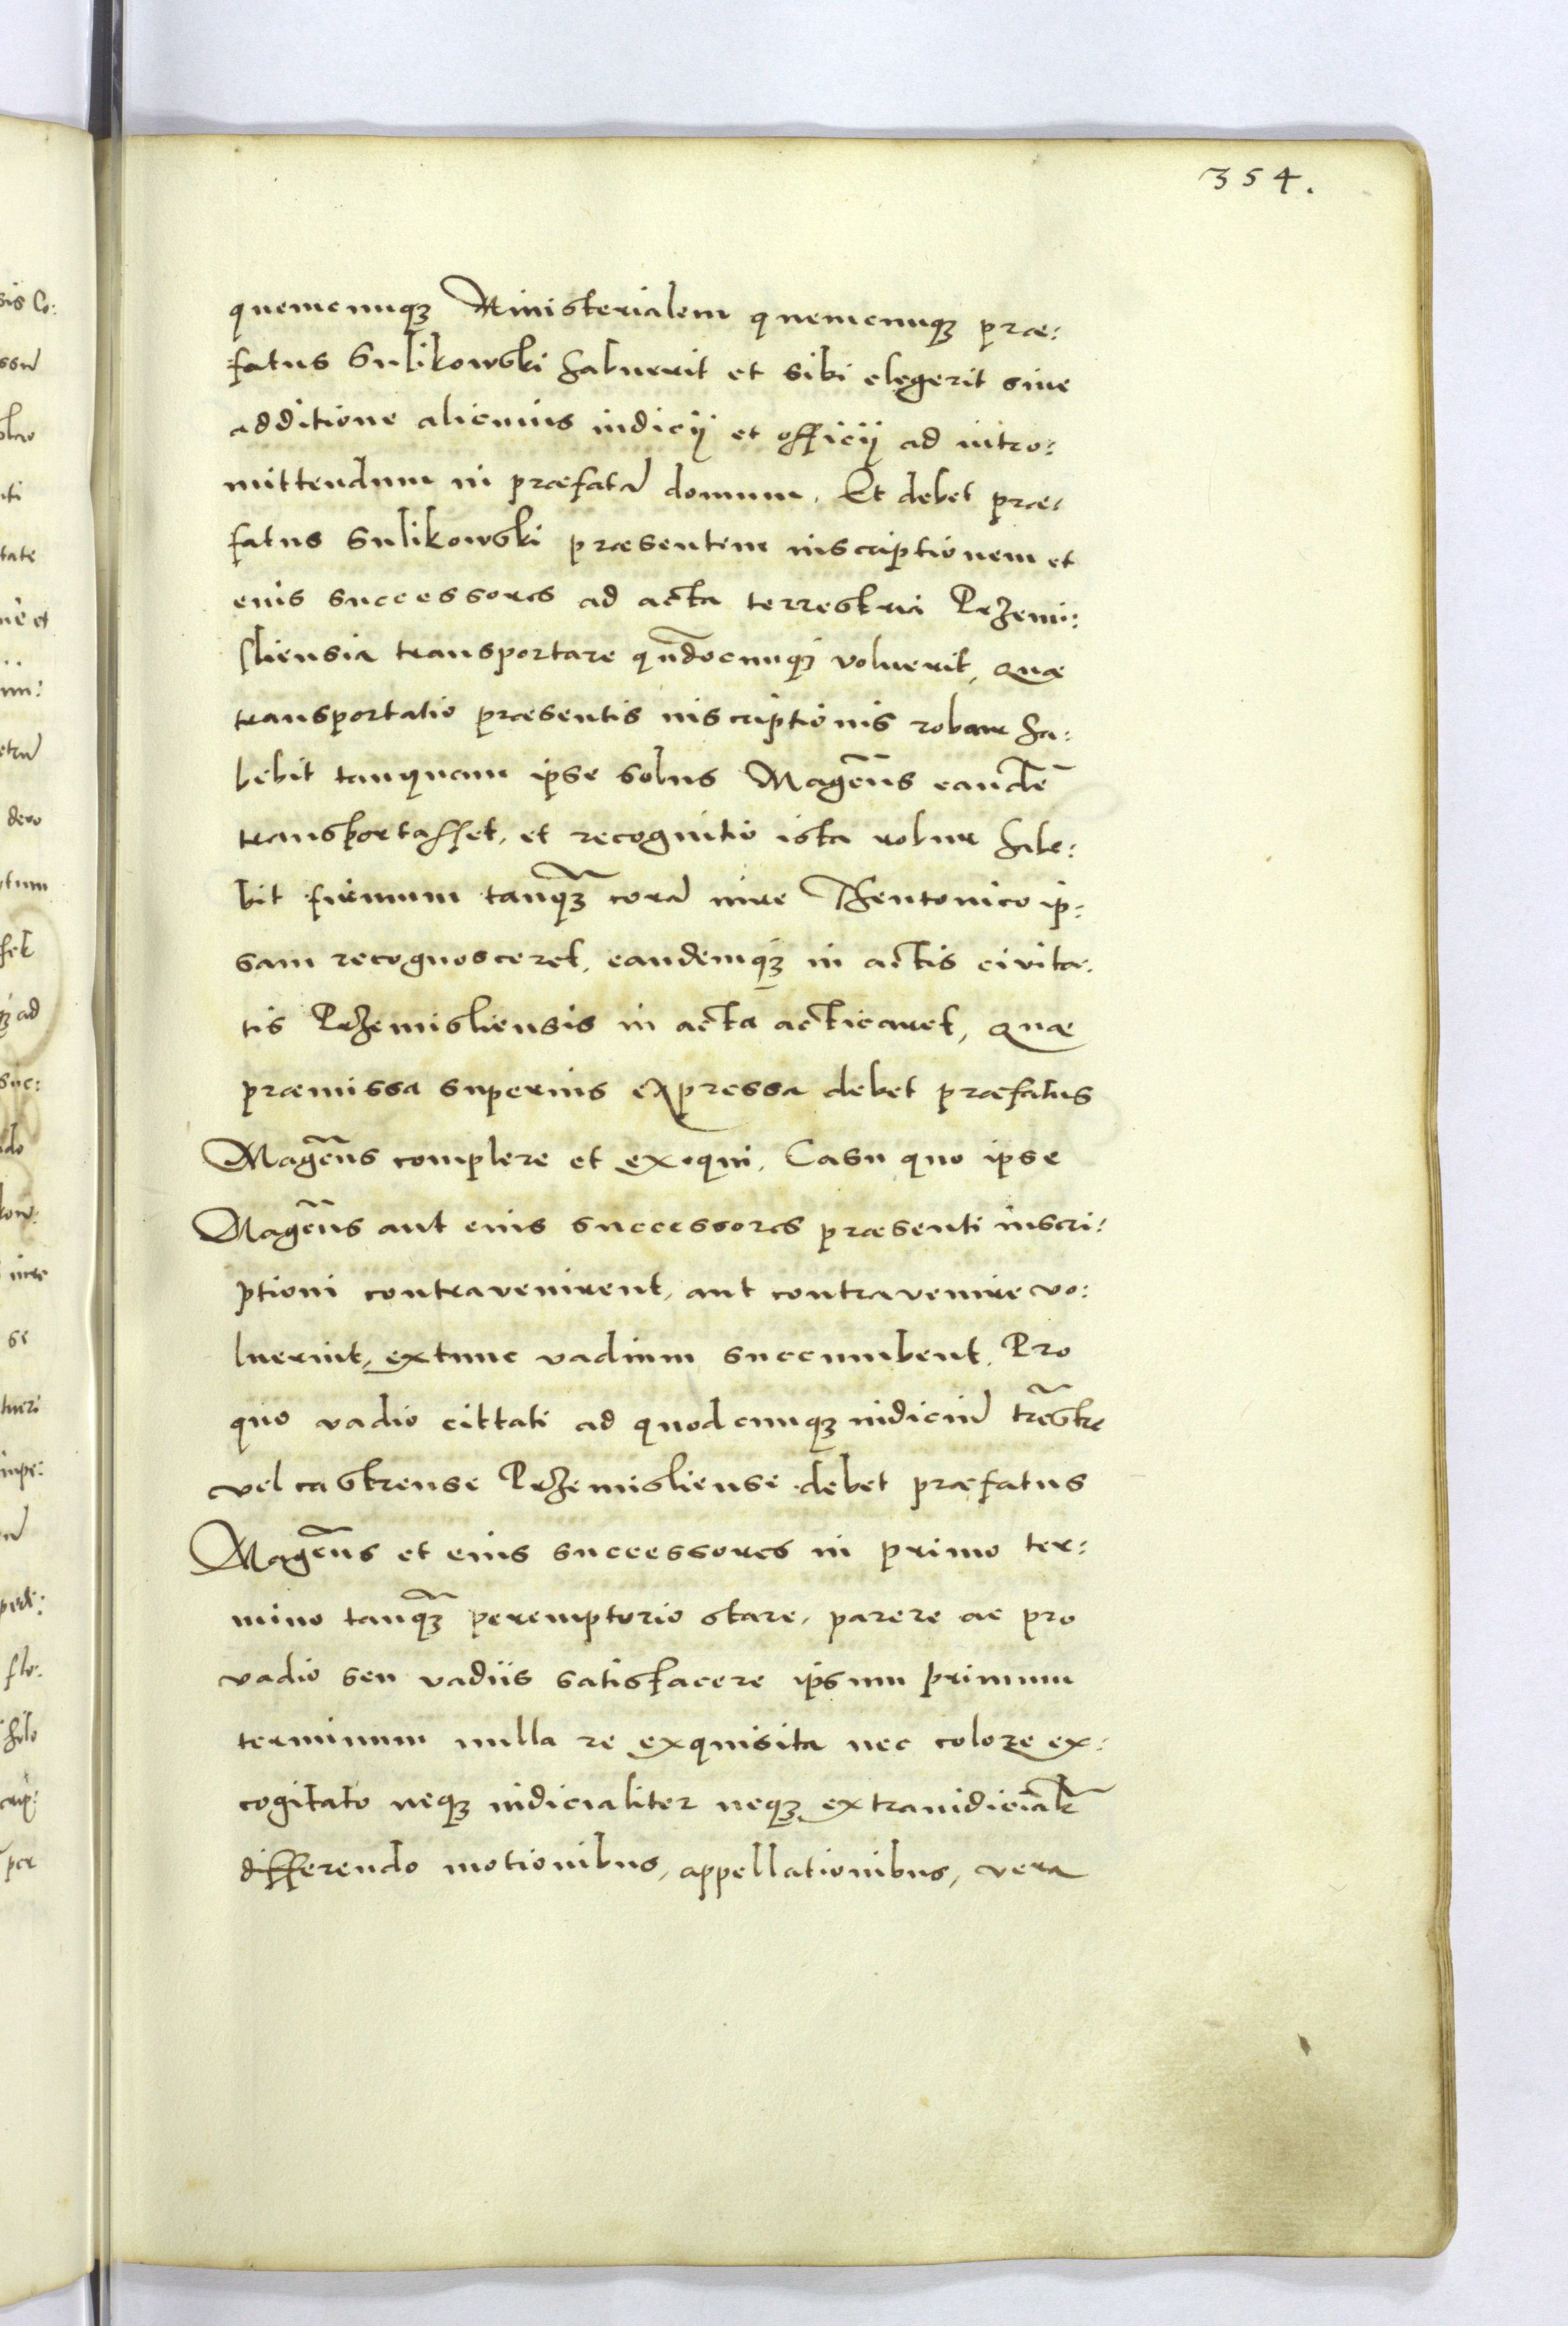 354.
quemcunqꝫ Ministerialem quemcunqꝫ præ:
fatus Sulikowski habuerit et sibi elegerit sine
additione alicuius iudicij et officij ad intro:
mittendum in præfatā domum. Et debet præ:
fatus Sulikowski præsentem inscriptionem et
eius successores ad acta terrestria Przemi:
sliensia transportare qūdocunqꝫ voluerit, quæ
transportatio præsentis inscriptionis robur ha:
bebit tanquam ipse solus Magcūs eandē
transportasset, et recognitio ista robur habe:
bit firmum tanqꝫ corā iure Theutonico ip:
sam recognosceret, eandemqꝫ in actis civita:
tis Przemisliensis in acta acticaret, quæ
præmissa superius expressa debet præfatus
Magcūs complere et exequi. Casu quo ipse
Magcūs aut eius successores præsenti inscri:
ptioni contravenirent, aut contravenire vo:
luerint, extunc vadium succumbent. Pro
quo vadio cittati ad quodcunqꝫ iudiciū trēstre
vel castrense Przemisliense debet præfatus
Magcūs et eius successores in primo ter:
mino tanqꝫ peremptorio stare, parere ac pro
vadio seu vadiis satisfacere ipsum primum
terminum nulla re exquisita nec colore ex:
cogitato neqꝫ iudicialiter neqꝫ extraiudicialr̄
differendo motionibus, appellationibus, vera